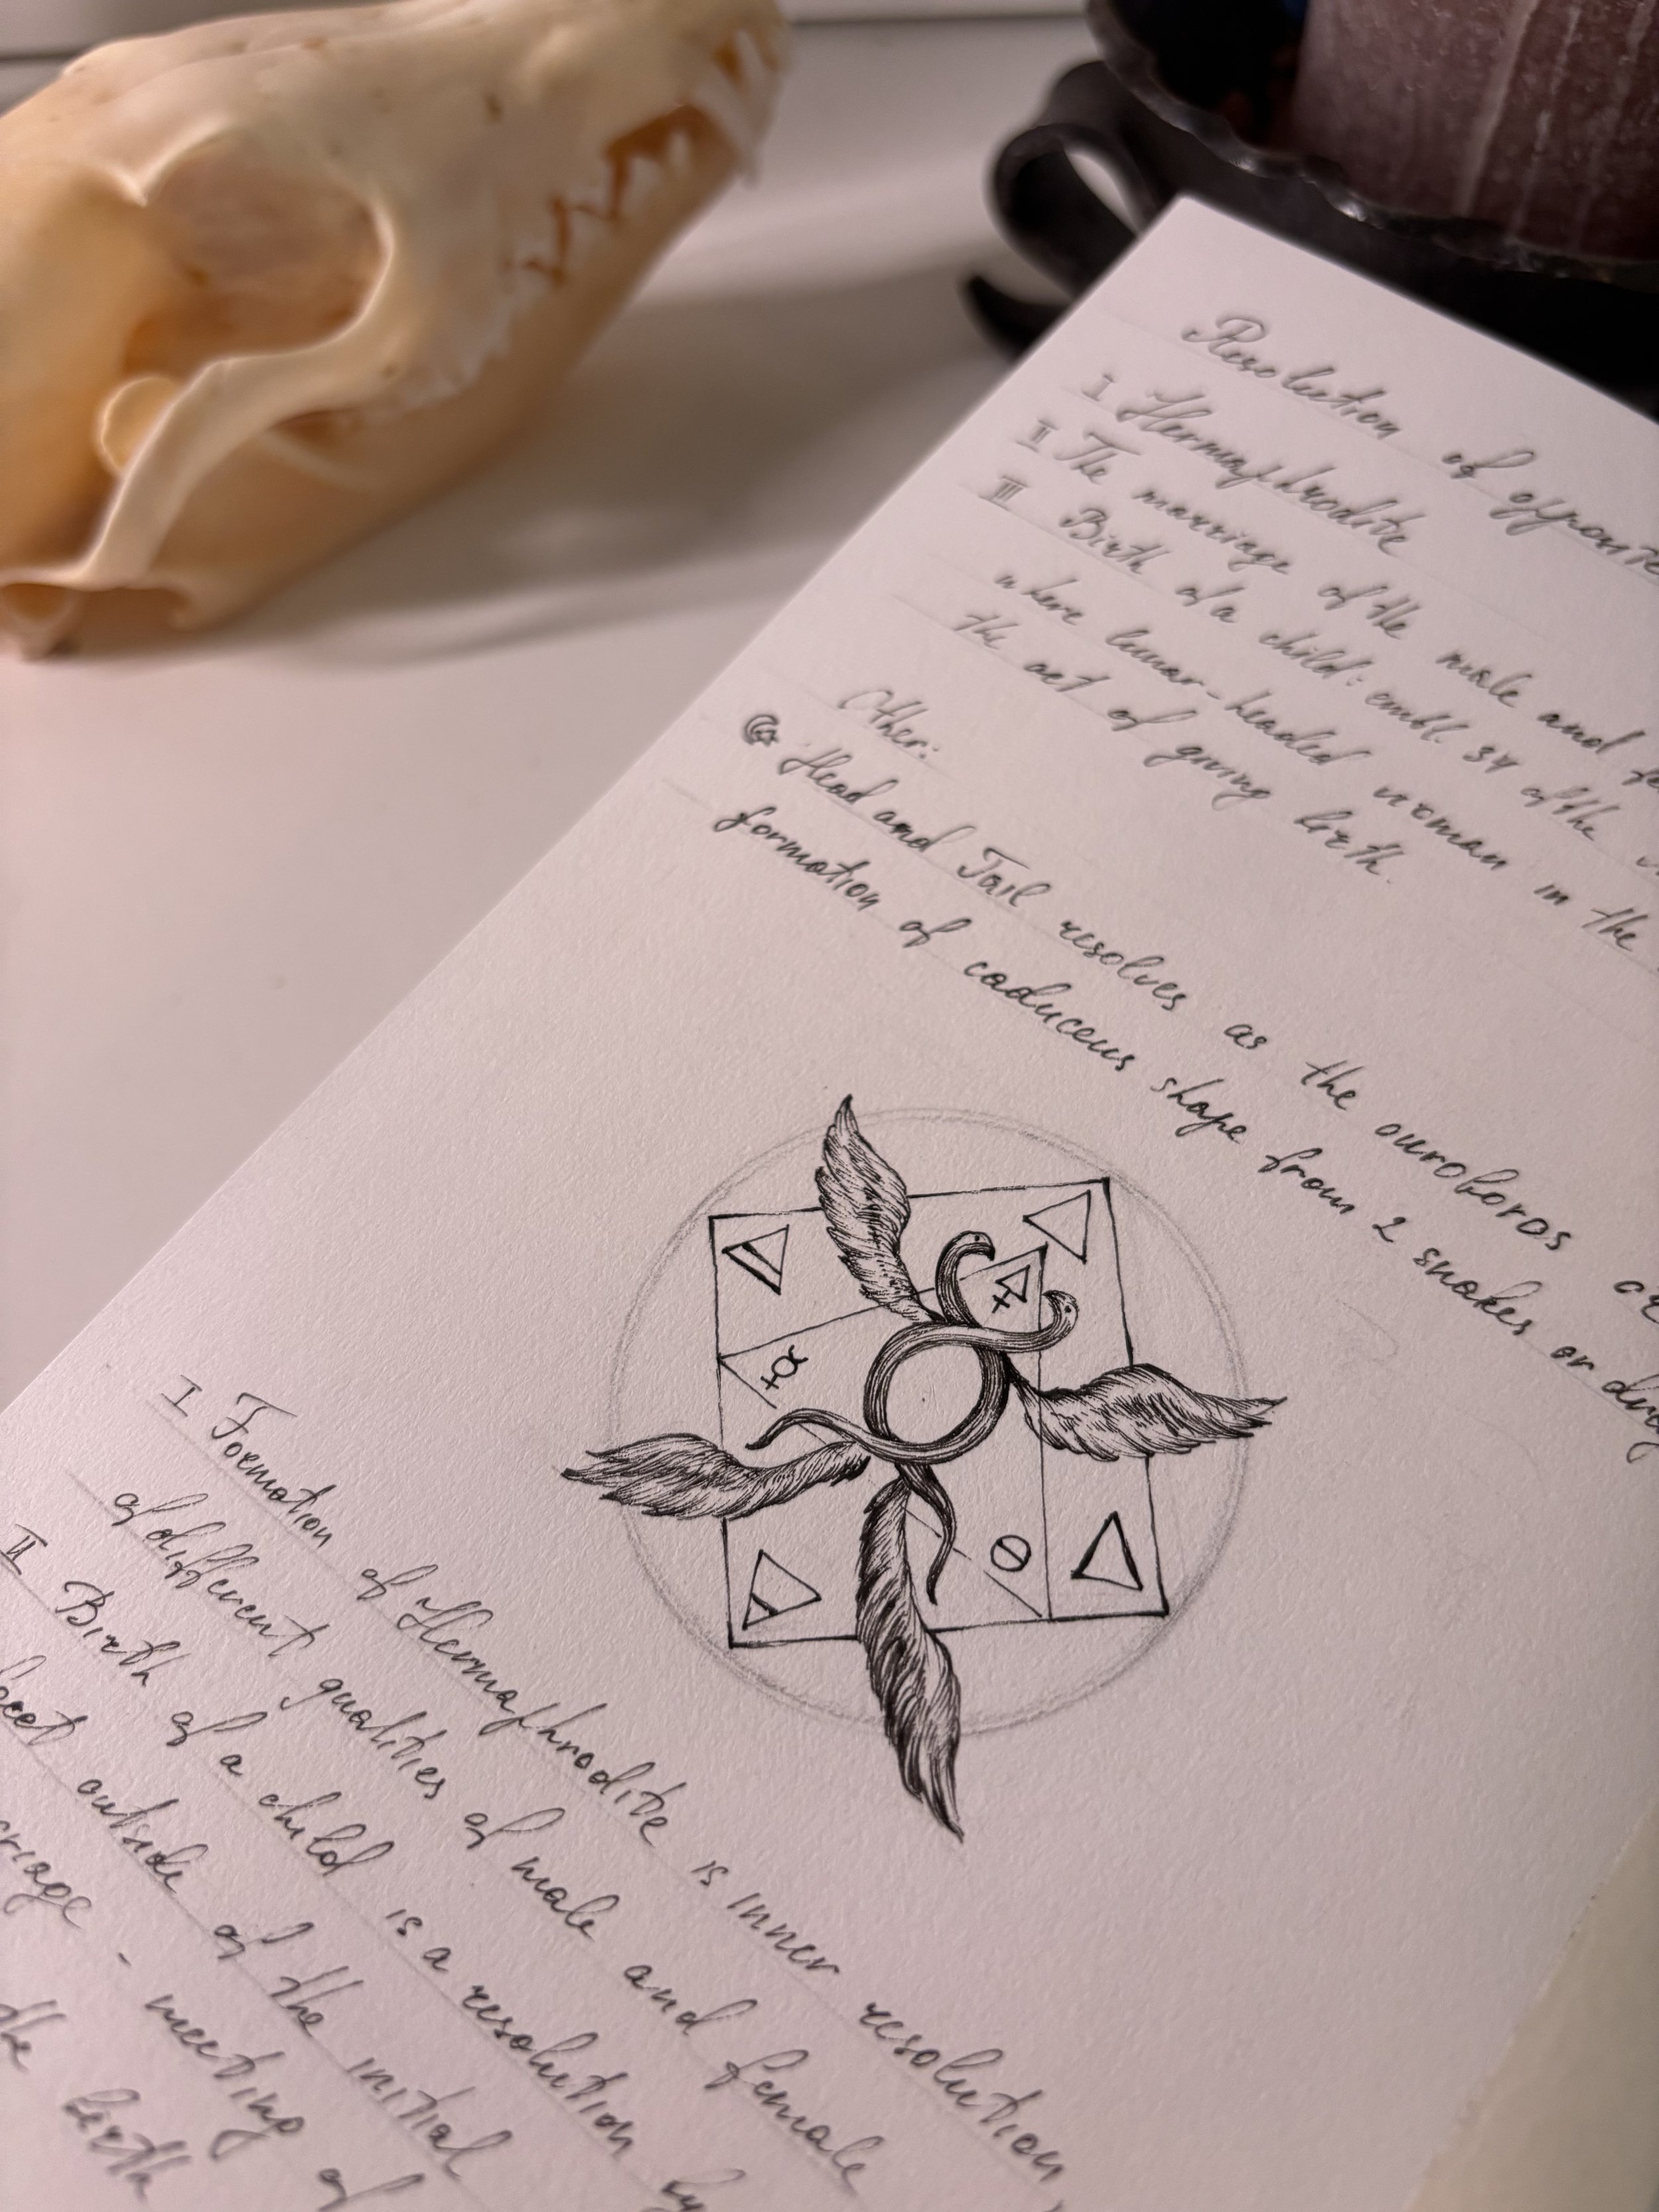 Resolution of opposite
I Hermaphrodite
II The marriage of the male and fe
III Birth of a child: embl. 34 of the
where lunar-headed woman in the
the act of giving birth.
Other:
Head and Tail resolves as the ouroboros
formation of caduceus shape from 2 snakes or
I Formation of Hermaphrodite is inner resolution
of different qualities of male and female
II Birth of a child is a resolution by
outside of the initial
- meeting of
the birth